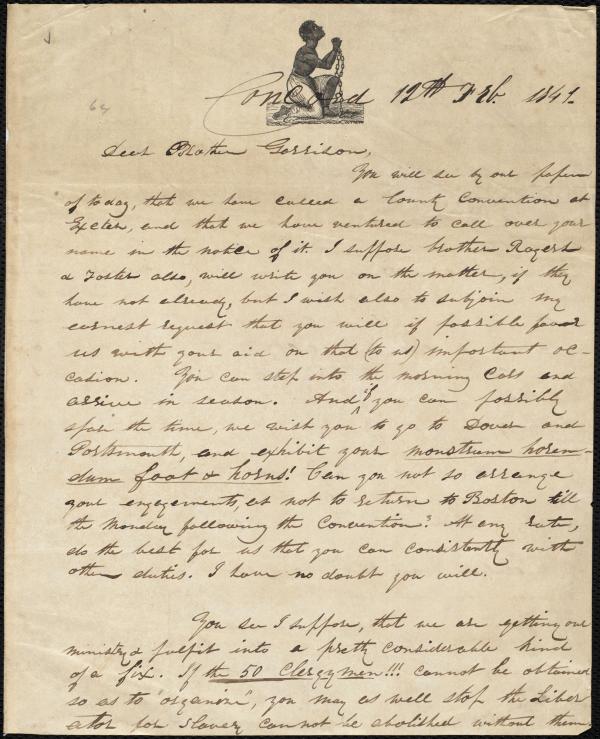 Concord 12th Feb. 1841.
Dear Brother Garrison,
You will see by our paper
of today, that we have called a County Convention at
Exeter, and that we have ventured to call over your
name in the notice of it. I suppose brother Rogers
& Foster also, will write you on the matter, if they
have not already, but I wish also to subjoin my
earnest request that you will if possible favor
us with your aid on that (to us) important oc-
casion. You can step into the morning Cars and
arrive in season. And if you can possibly
spare the time, we wish you to go to Dover and
Portsmouth, and exhibit your monstrum horen-
dum foot & horns! Can you not so arrange
your engagements, as not to return to Boston till
the Monday following the Convention? At any rate,
do the best for us that you can consistently with
other duties. I have no doubt you will.
You see I suppose, that we are getting our
ministry & pulpit into a pretty considerable kind
of a fix. If the 50 Clergymen!!! cannot be obtained
so as to "organize", you may as well stop the Liber
ator for slavery cannot be abolished without them.